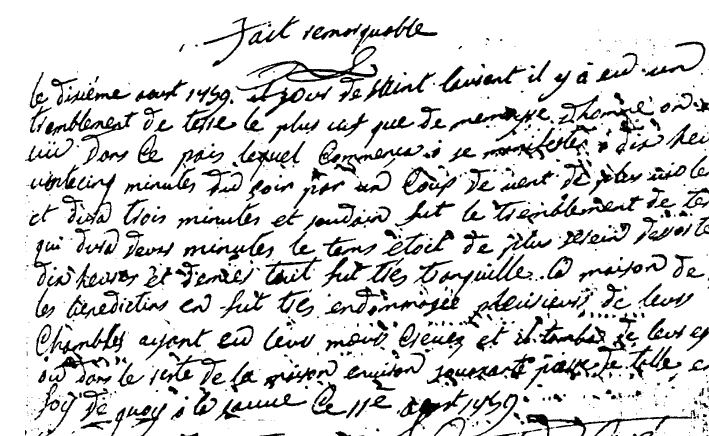 Fait remarquable
le dixiéme aoust 1759. et jour de Saint laurant il y à eu un
tremblement de terre le plus que de memoyre d'homme on
vu dans ce païs lequel Commença à se manifester à dix heu
vintecinq minutes du soir par un Coup de vent de plus viole
et dura trois minutes et soudain fut le tremblement de te
qui dura deux minutes le tems étoit de plus serein
dix heures et demies tout fut très tranquille. la maison de
les benedictins en fut très endommagée pleusieurs de leurs
Chambles ayant eu leurs murs et il tomba de leurs
ou dans le reste de la maison environ soixante de
foy de quoy à la sauve Ce 11e aoust 1759